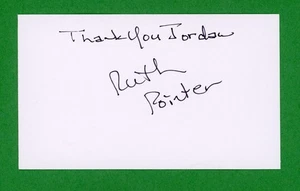 Thank You Jordan
Ruth
Pointer